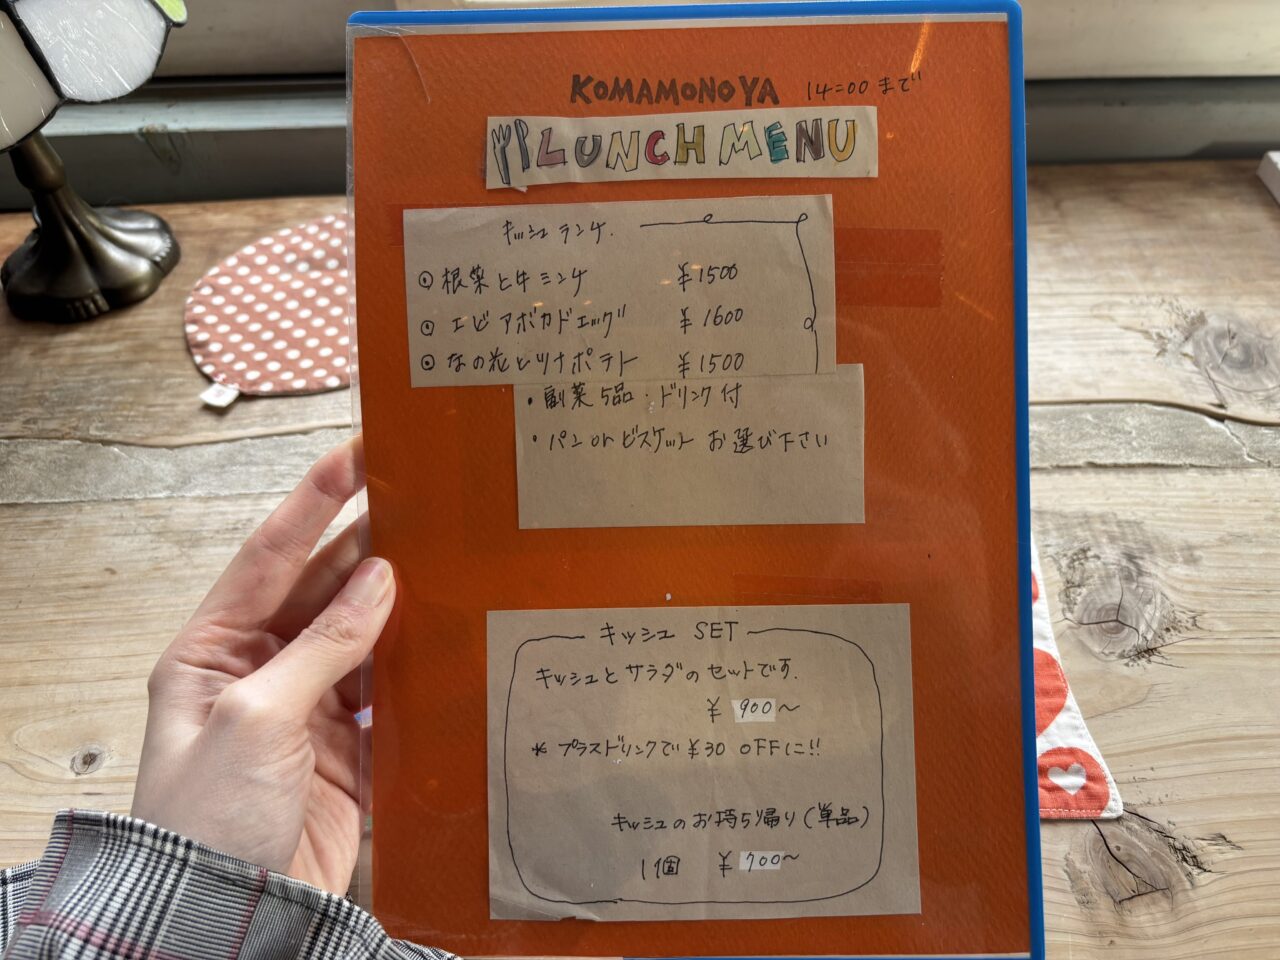 KOMAMONOYA 14=00 まで
LUNCH MENU
キッシュ ランチ.
根菜と牛ミンチ ¥1500
エビアボカドエッグ ¥1600
なの花とツナポテト ¥1500
・副菜5品・ドリンク付
・パン or ビスケット お選び下さい
キッシュ SET
キッシュとサラダのセットです.
¥ 900〜
* プラスドリンクで ¥30 OFFに!!
キッシュのお持ち帰り(単品)
1個 ¥ 700〜